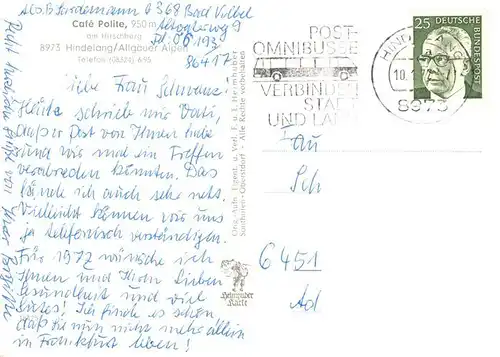 Abs. B. Lindemann 6368 Bad Vilbel
Café Polite, 950 m
am Hirschberg
8973 Hindelang/Allgäuer Alpen
Telefon (08324) 695
Tel. 06193
86417
Liebe Frau
Heute schrieb mir Vati,
daß er Post von Ihnen habe
und wir mal ein Treffen
verabreden könnten. Das
fände ich auch sehr nett.
Vielleicht können wir uns
ja telefonisch verständigen.
Für 1972 wünsche ich
Ihnen und Ihren Lieben
Gesundheit und viel
Gutes! Ich finde es schön
daß Sie nun nicht mehr allein
in Frankfurt leben!
Recht herzliche Grüße von Ihrer
Orig.-Aufn. Eigent. u. Verl. F. u. E. Heimhuber
Sonthofen-Oberstdorf - Alle Rechte vorbehalten
Heimhuber
Karte
POST-
OMNIBUSSE
VERBINDEN
STADT
UND LAND
8973
25 DEUTSCHE
BUNDESPOST
Sch
6451